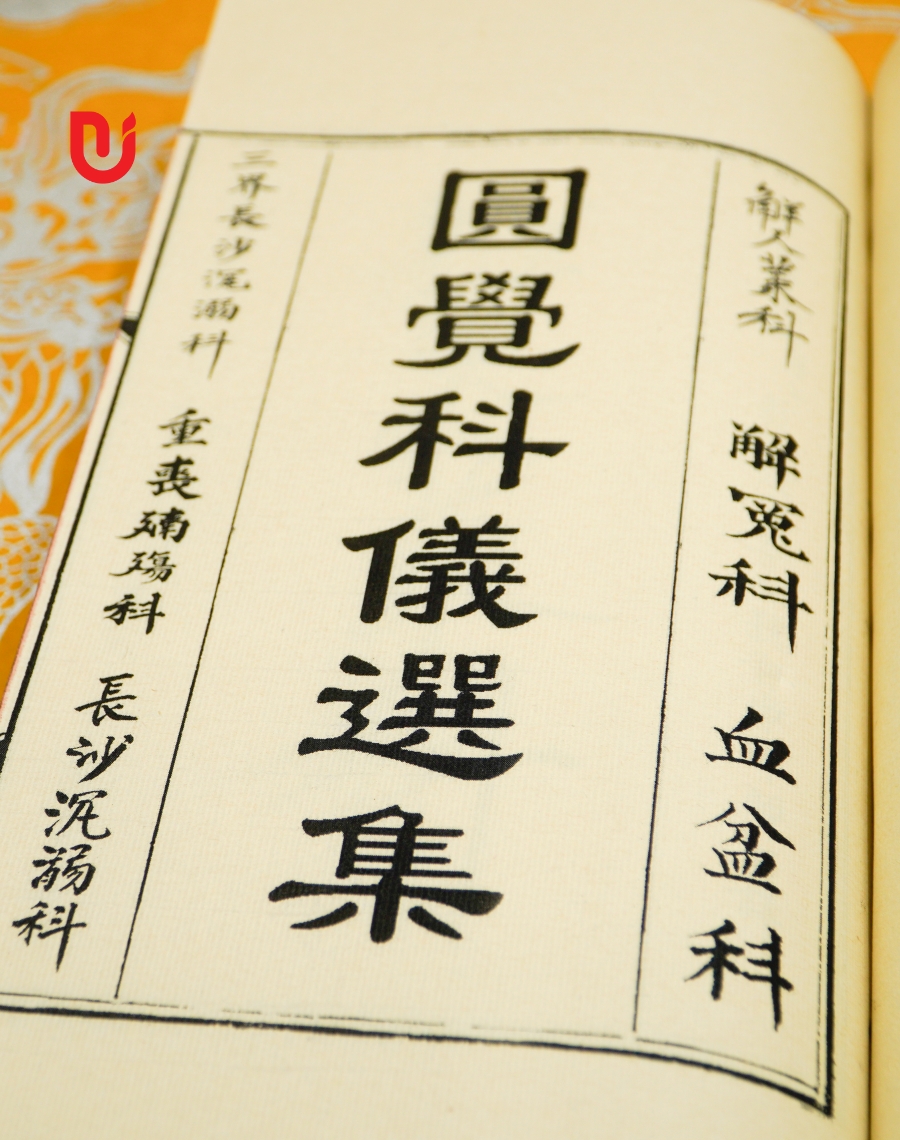 觧科 解冤科 血盆科
圓覺科儀選集
三界長沙沉溺科 重喪殤科 長沙沉科